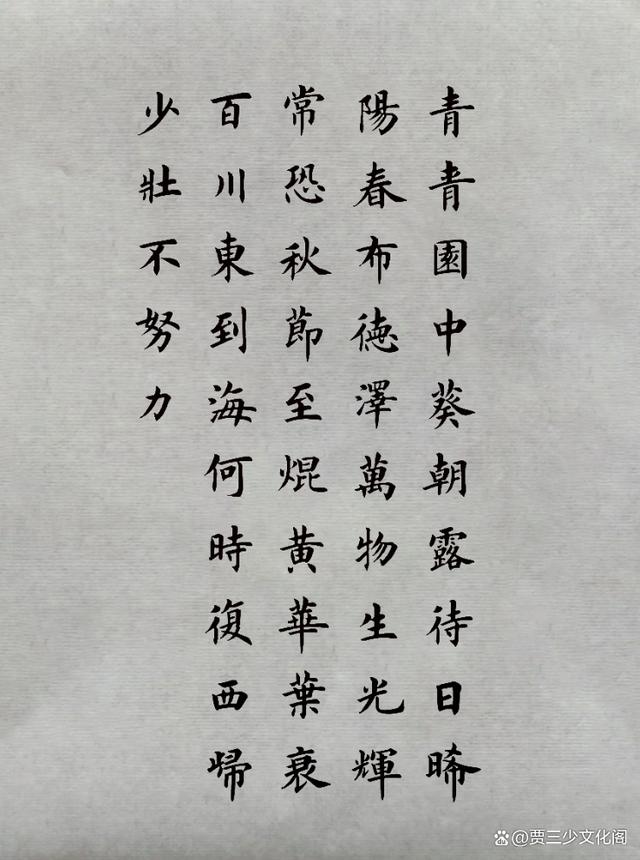 青青園中葵朝露待日晞
陽春布德澤萬物生光輝
常恐秋節至焜黃華葉衰
百川東到海何時復西歸
少壯不努力
贾三少文化阁